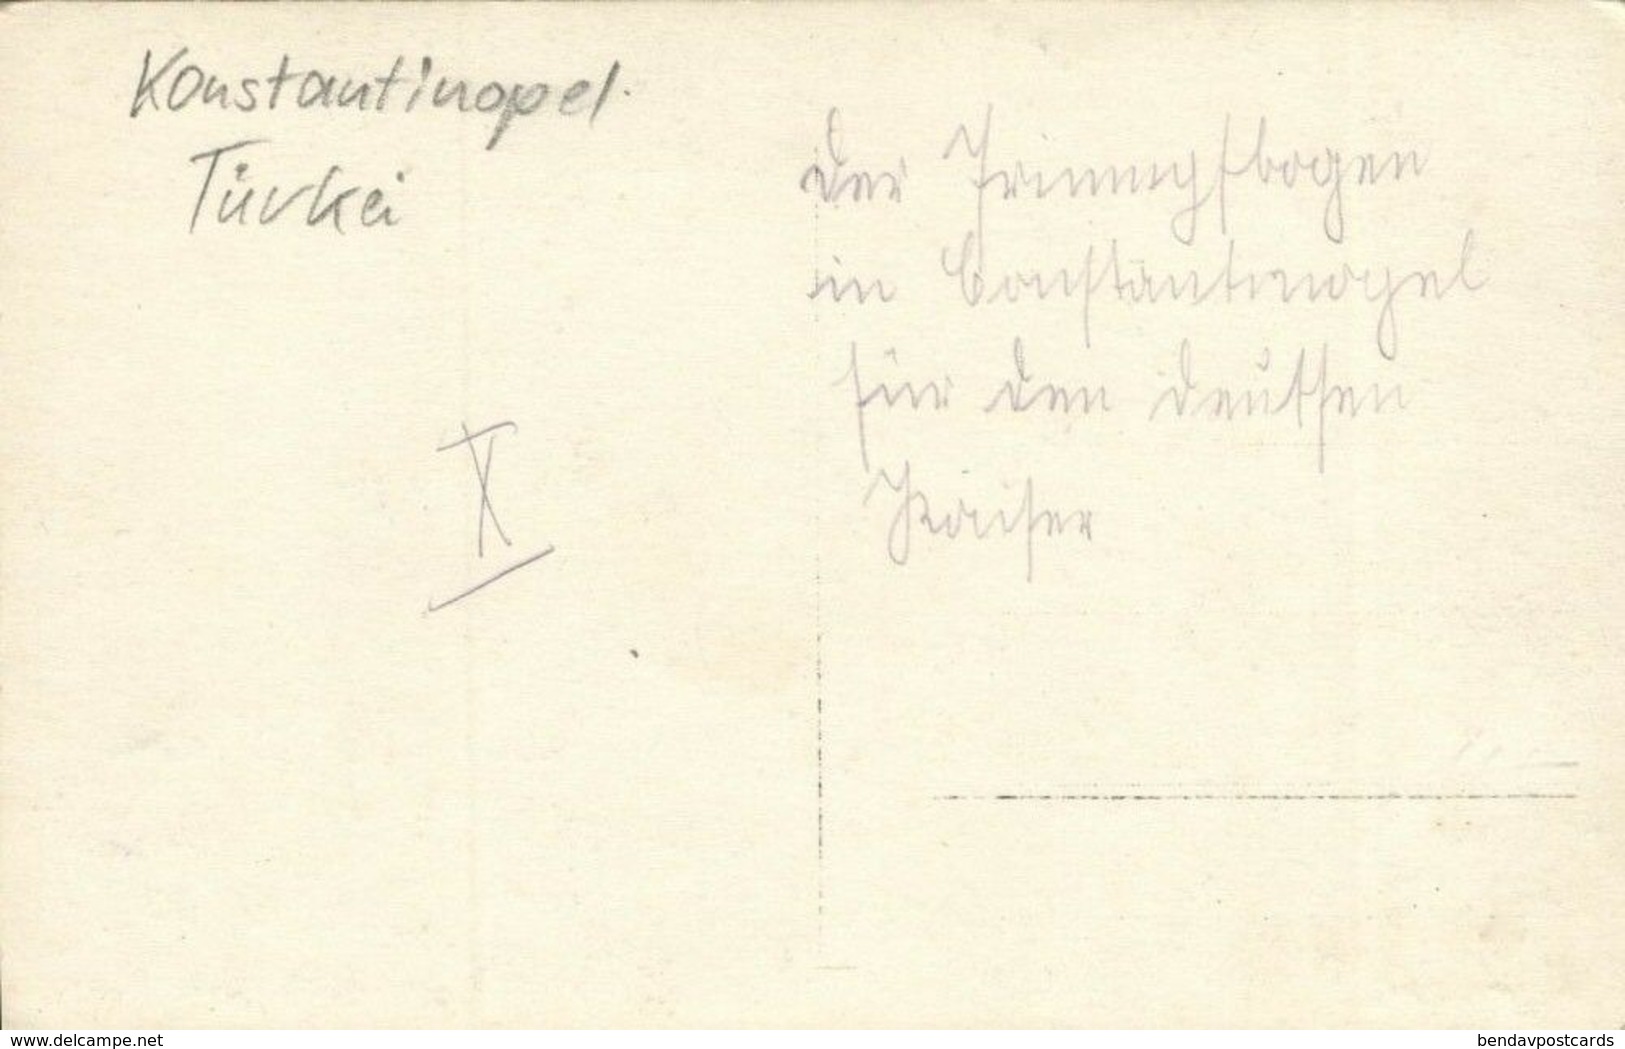 Konstantinopel.
Türkei
X
Der Triumpfbogen
in Constantinopel
für den deutsen
Kaiser
www.delcampe.net
bendavpostcards